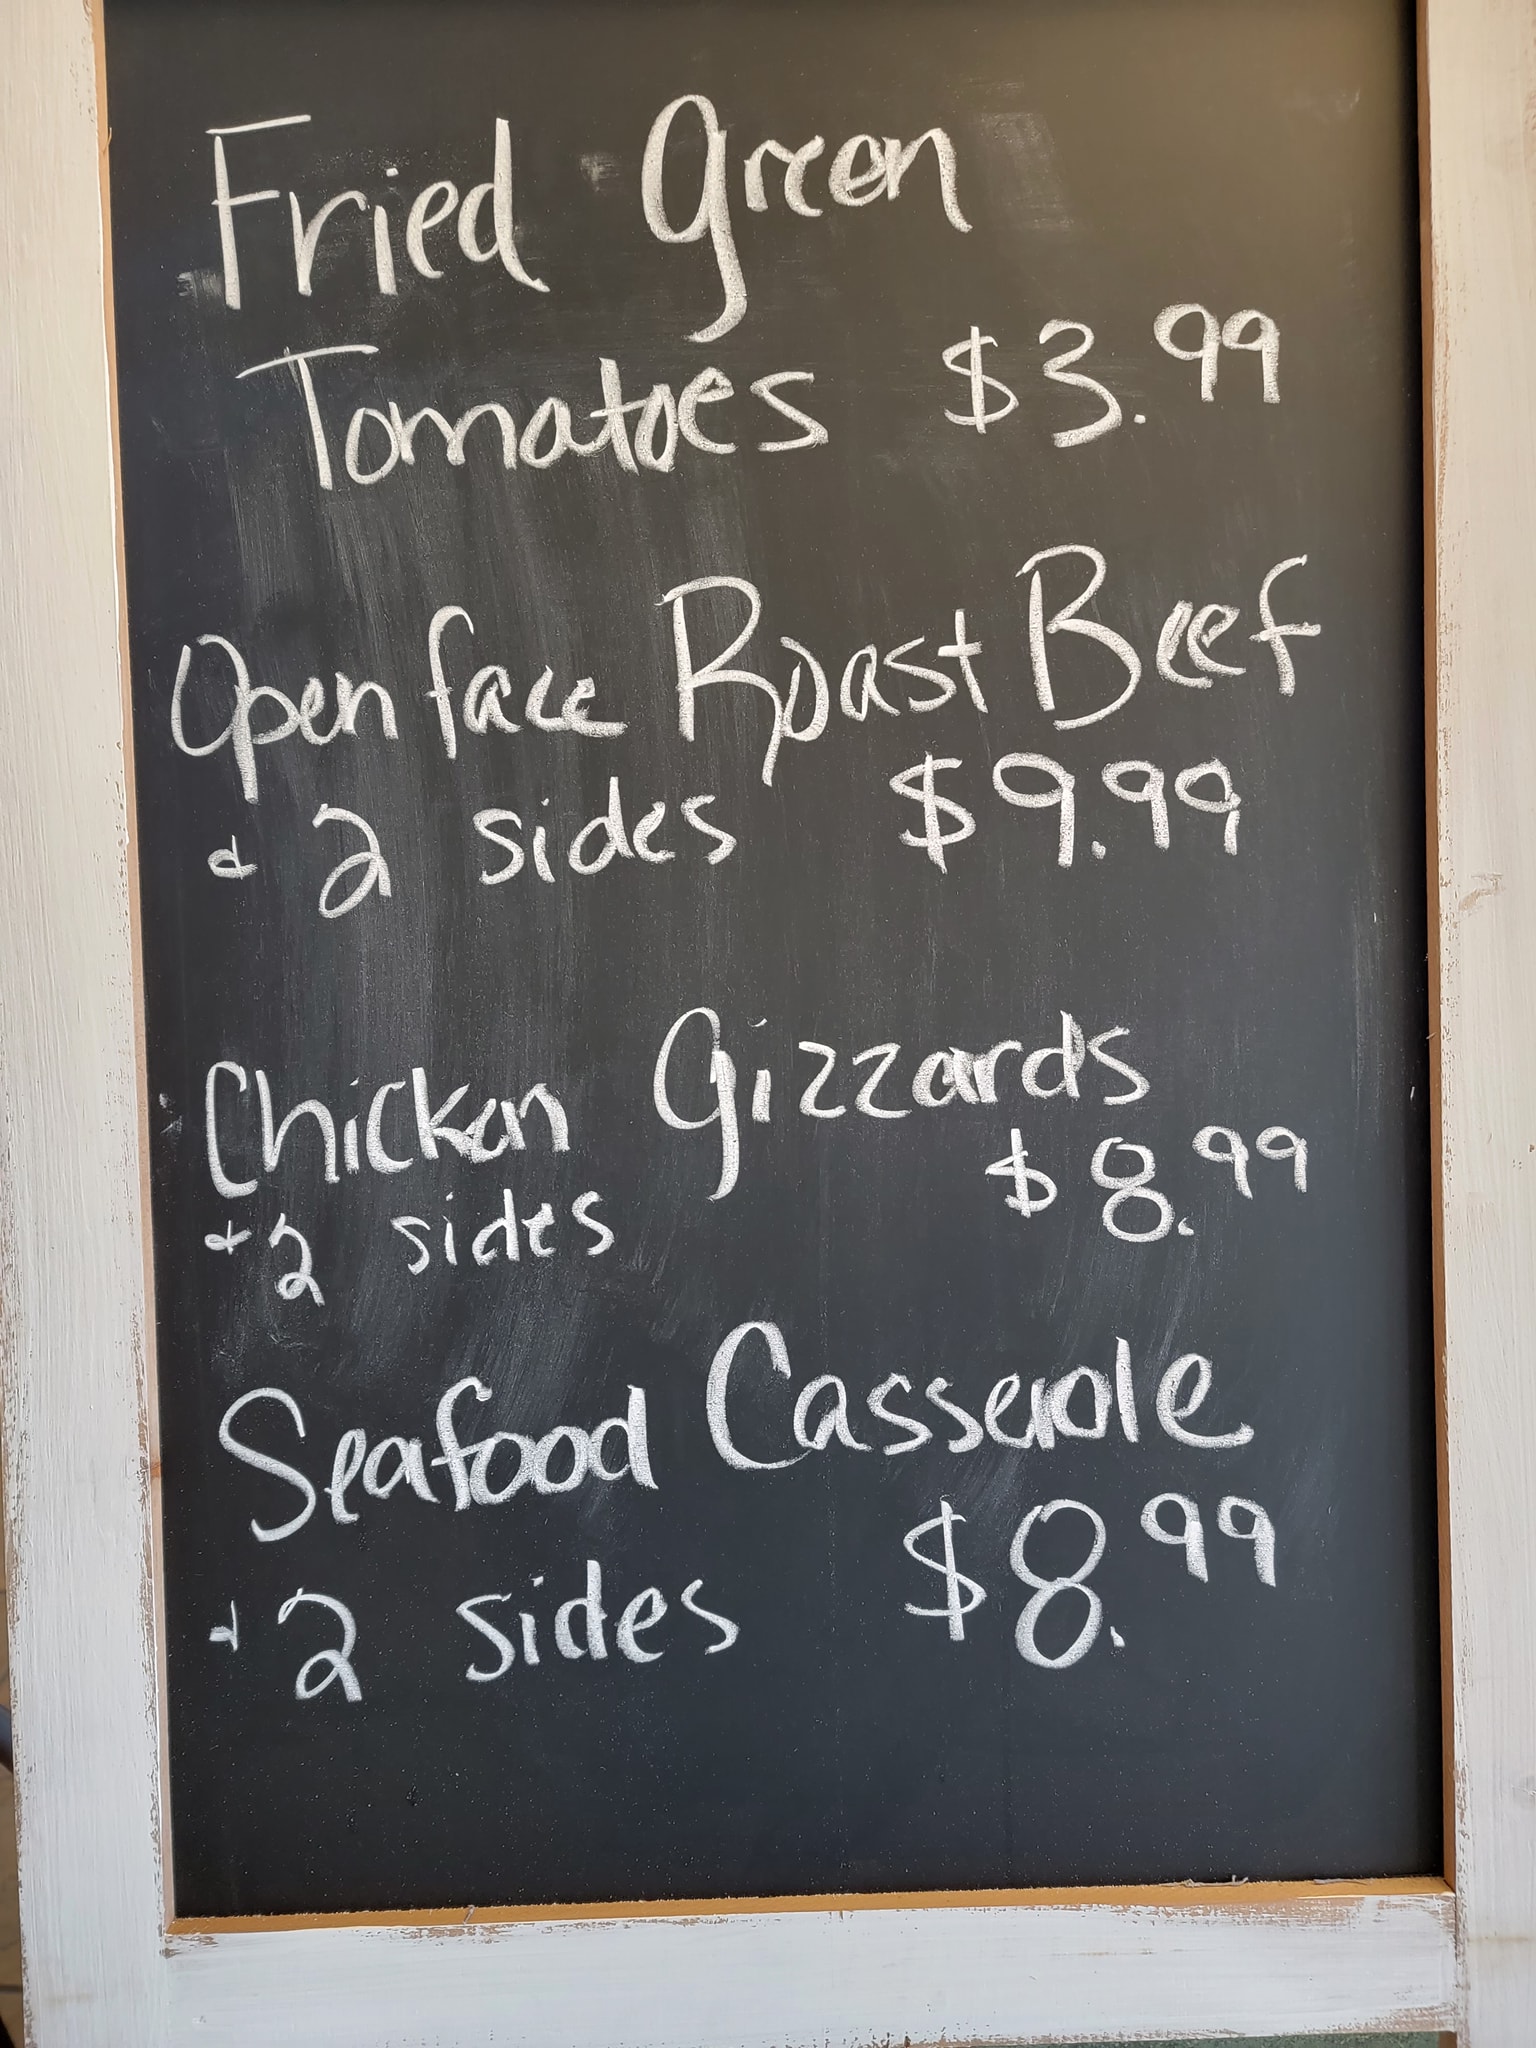 Fried Green
Tomatoes $3.99
Open face Roast Beef
+ 2 sides $9.99
Chicken Gizzards
+ 2 sides $8.99
Seafood Casserole
+ 2 sides $8.99